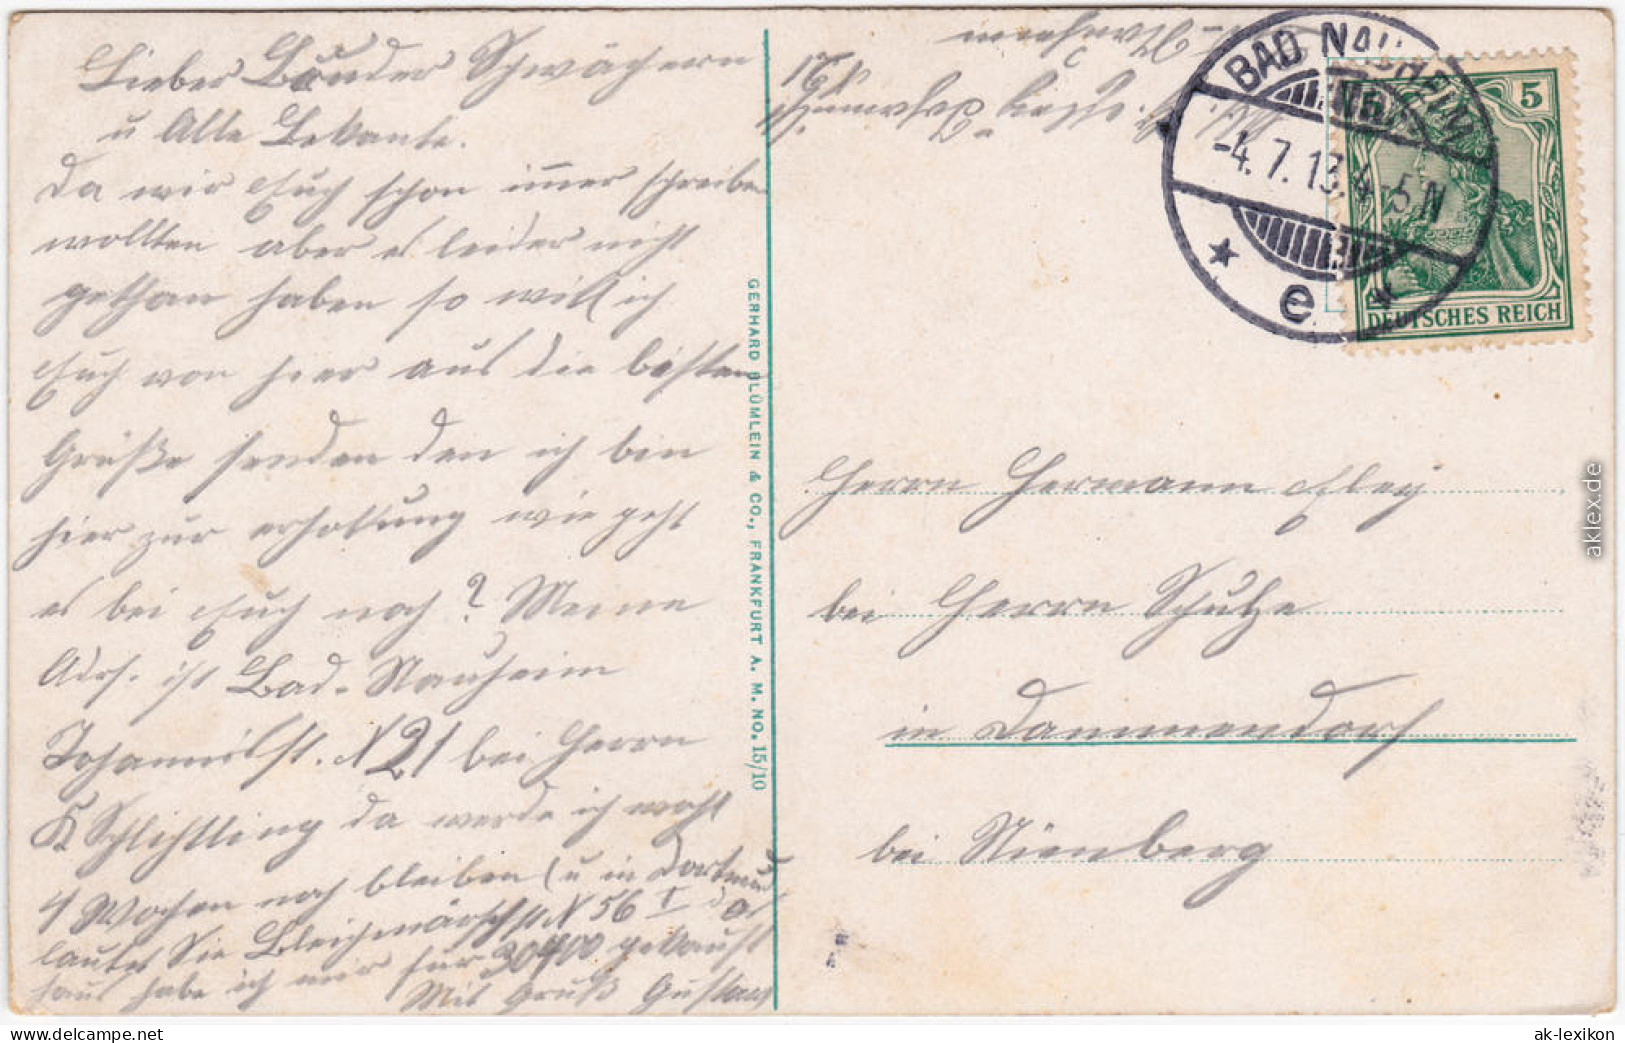 Lieber Bruder Schwägerin
u Alle Bekante.
Da wir Euch schon immer schreiben
wollten aber es leider nicht
gethan haben so will ich
Euch von hier aus die besten
Grüße senden den ich bin
hier zur erhollung wie geht
es bei Euch noch? Meine
Adrs. ist Bad-Nauheim
Johannisst. N 21 bei Herrn
K Schlichtling da werde ich wohl
4 Wochen noch bleiben (u in Dortmund
lautet Sie Bleichmärschst N 56 I das
haus habe ich mir für 30400 gekauft
Mit Gruß Gustav
GERHARD BLÜMLEIN & CO., FRANKFURT A. M. NO. 15/10
BAD NAUHEIM
-4.7.13.4-5N
* e *
5
DEUTSCHES REICH
Herrn Hermann Eley
bei Herrn Schulze
in Dammendorf
bei Nienberg
aklex.de
www.delcampe.net
ak-lexikon